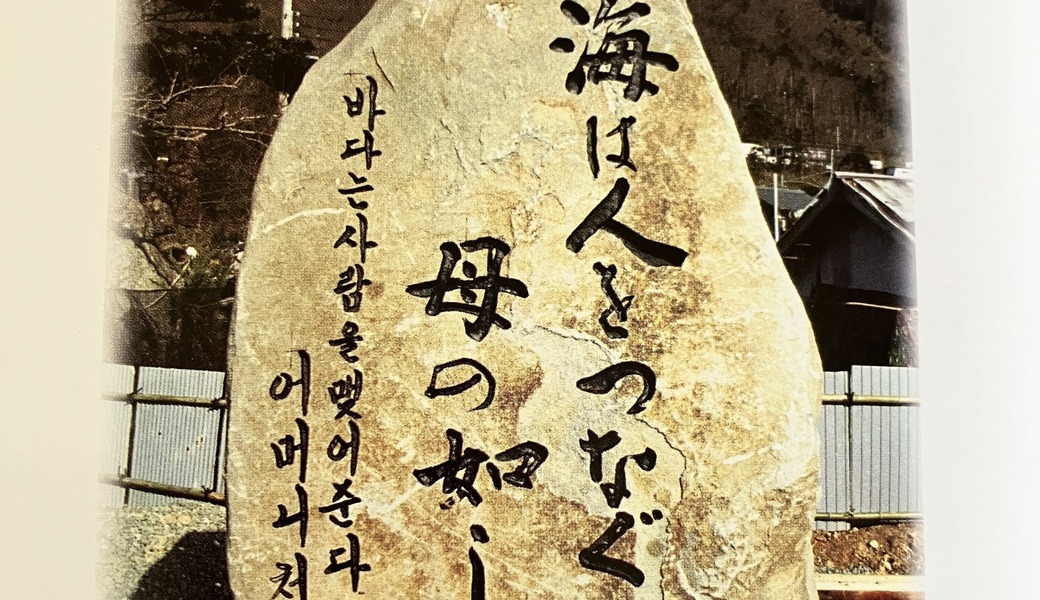 海は人をつなぐ
母の如し
바다는사람을맺어준다
어머니처